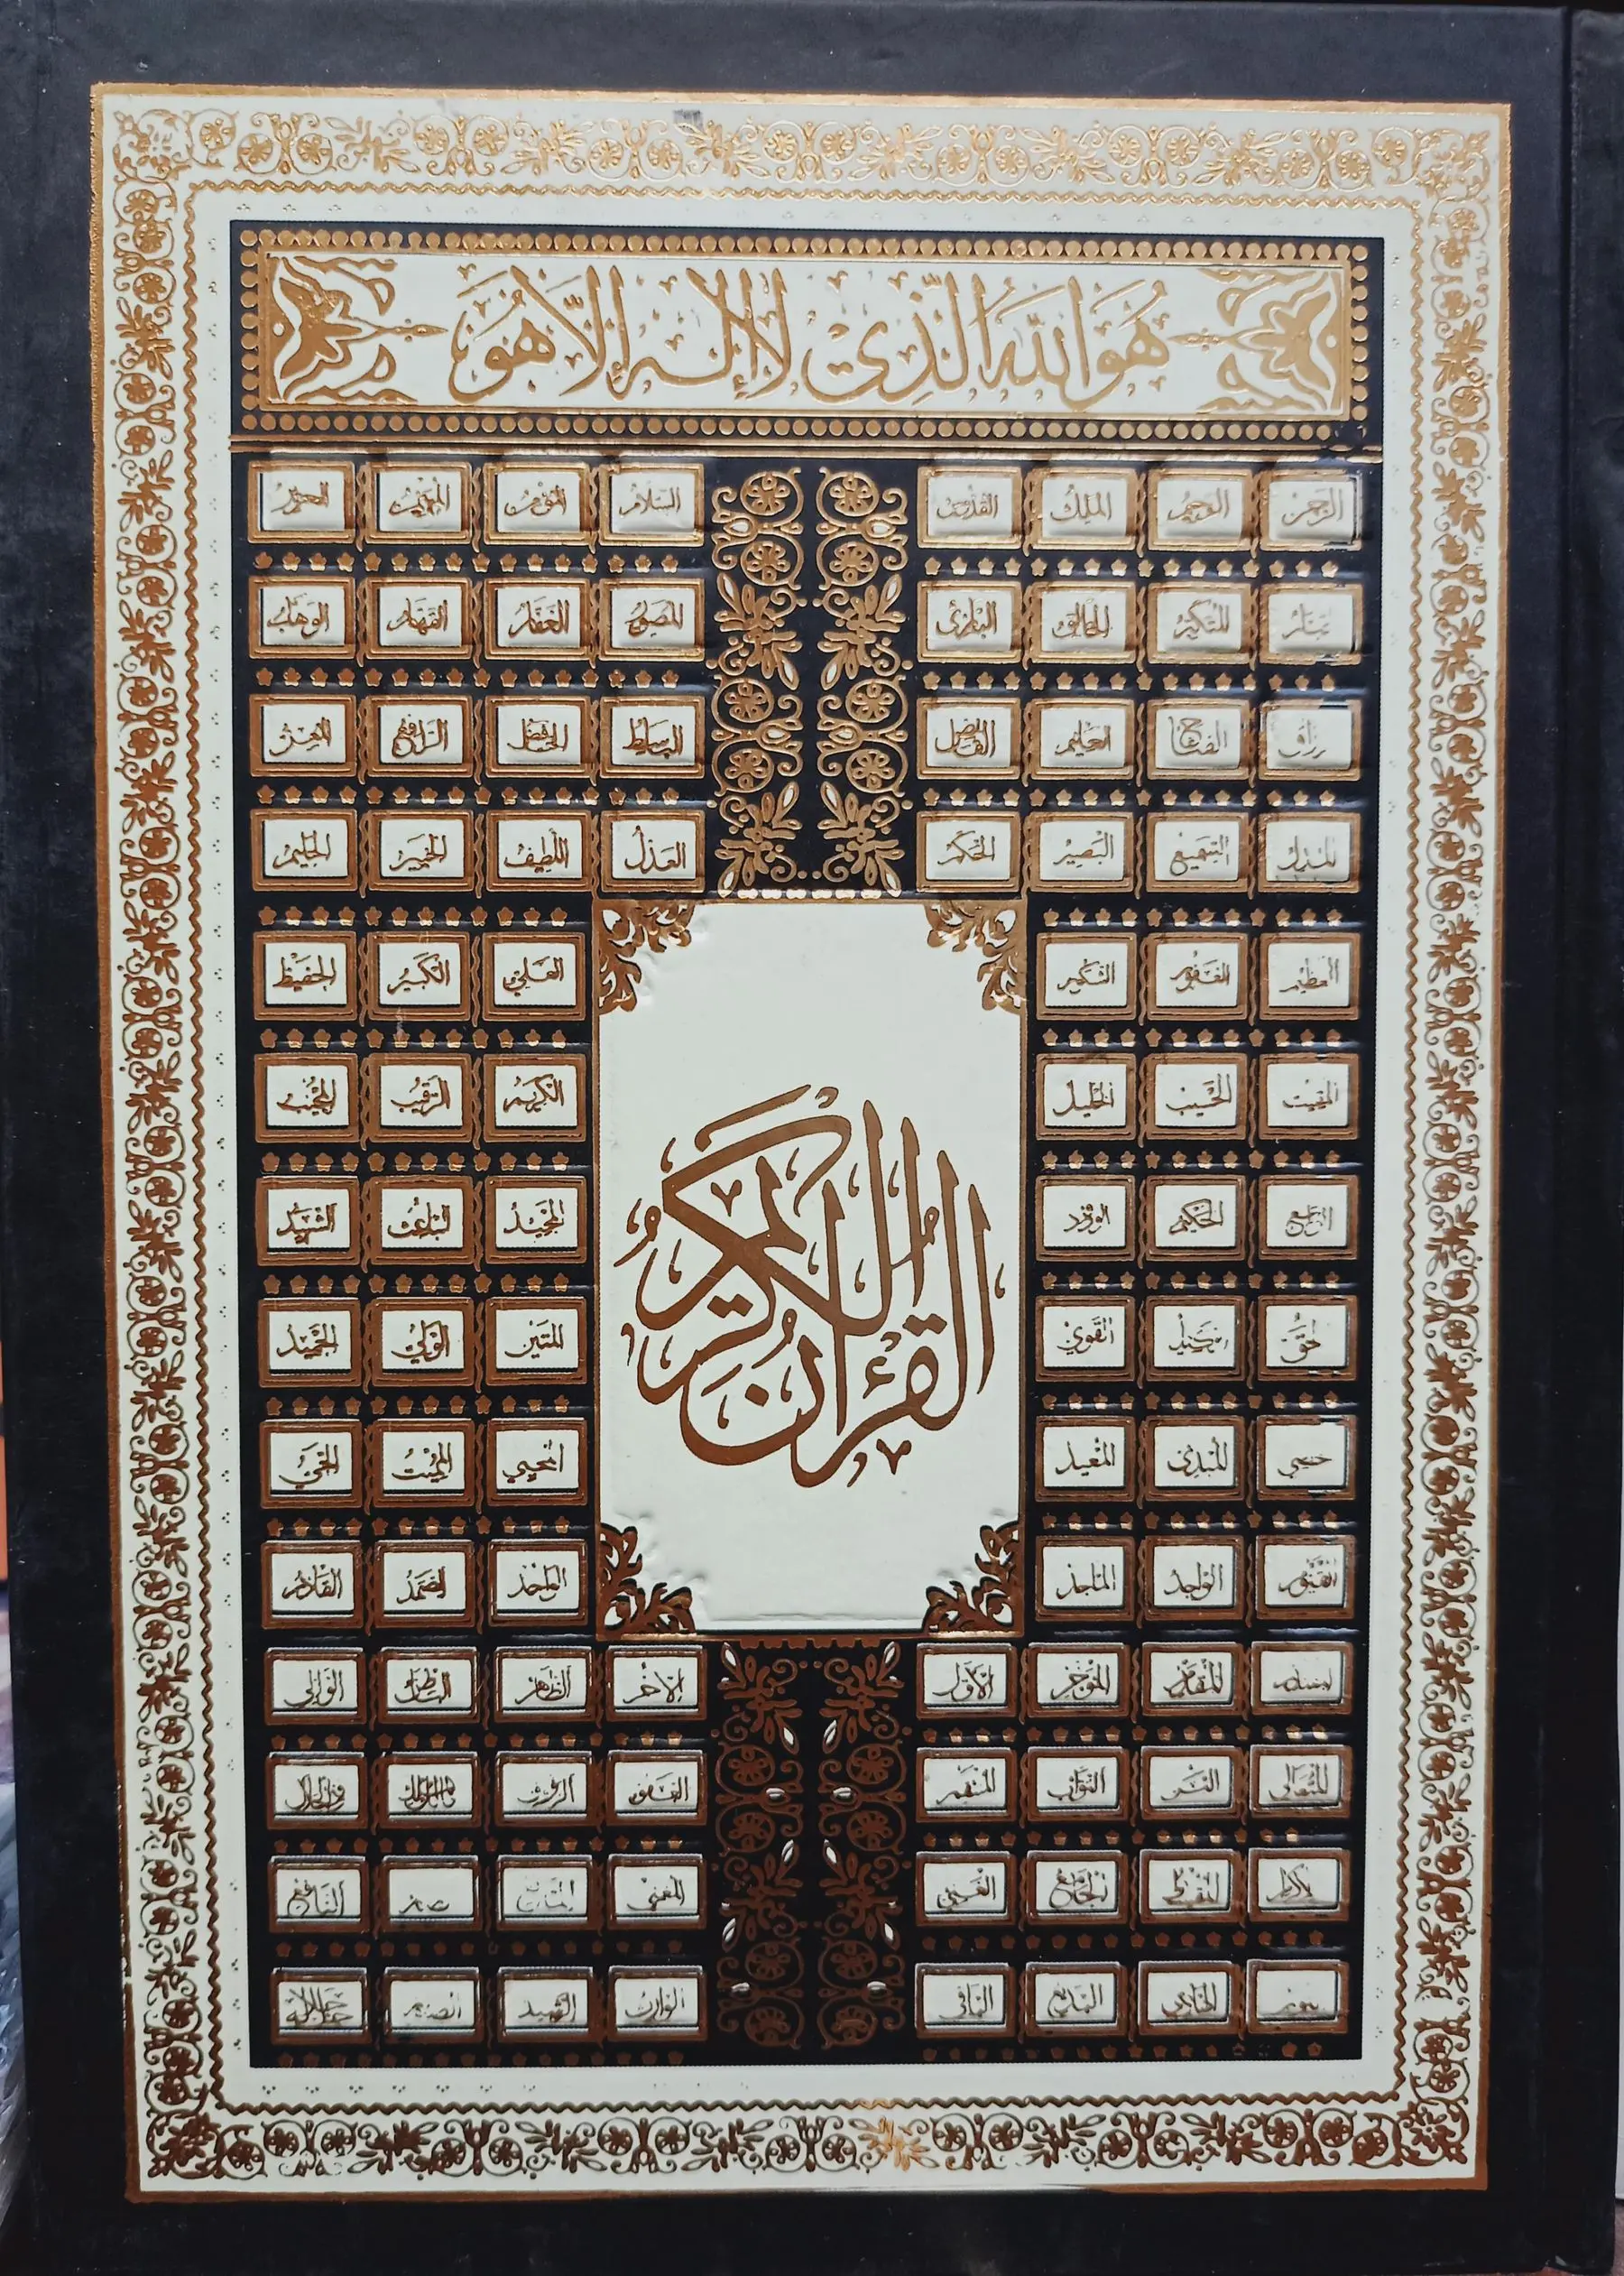 هُوَ اللّٰهُ الَّذِیْ لَا إِلٰهَ إِلَّا هُوَ
الرحمن الرحیم الملك القدوس السلام المؤمن المهیمن العزیز
المتكبر الخالق البارئ المصور الغفار القهار الوهاب
الفتاح العلیم القابض الباسط الخافض الرافع المعز
المذل السمیع البصیر الحكم العدل اللطیف الخبیر الحلیم
العظیم الغفور الشكور العلي الكبیر الحفیظ
المقیت الحسیب الجلیل الكریم الرقیب المجیب
الواسع الحكیم الودود المجید الباعث الشهید
القوي المتین الولي الحمید
المبدئ المعید المحیي الممیت الحي
القیوم الواجد الماجد الواحد الصمد القادر
القرآن الكريم
المقدم المؤخر الأول الآخر الظاهر الباطن الوالي
المتعالي البر التواب المنتقم العفو الرؤوف مالك الملك ذو الجلال
المقسط الجامع الغني المغني المانع النافع
الهادي البدیع الباقي الوارث الرشید الصبور جل جلاله